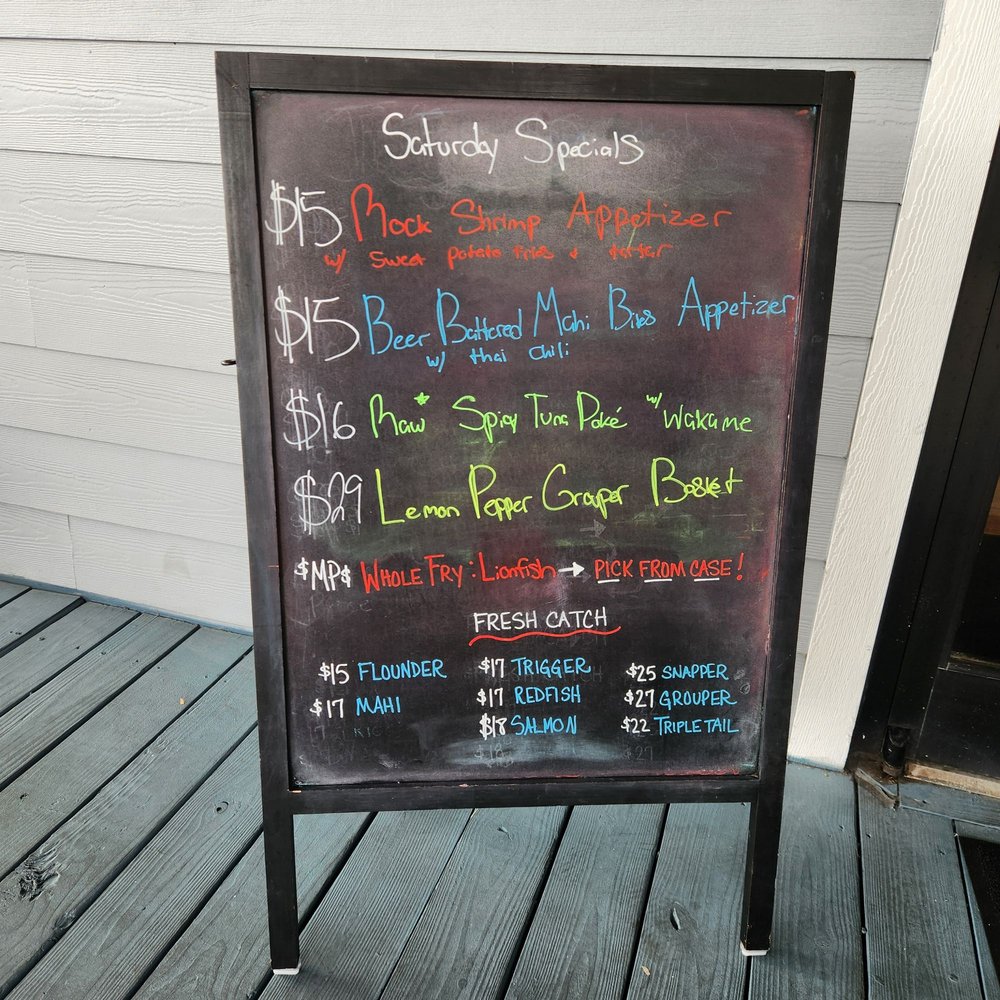 Saturday Specials
$15 Rock Shrimp Appetizer
w/ sweet potato fries + tartar
$15 Beer Battered Mahi Bites Appetizer
w/ thai chili
$16 Raw* Spicy Tuna Poké w/ Wakame
$29 Lemon Pepper Grouper Basket
$MP$ WHOLE FRY: Lionfish → PICK FROM CASE!
FRESH CATCH
$15 FLOUNDER $17 TRIGGER $25 SNAPPER
$17 MAHI $17 REDFISH $27 GROUPER
$18 SALMON $22 TRIPLETAIL